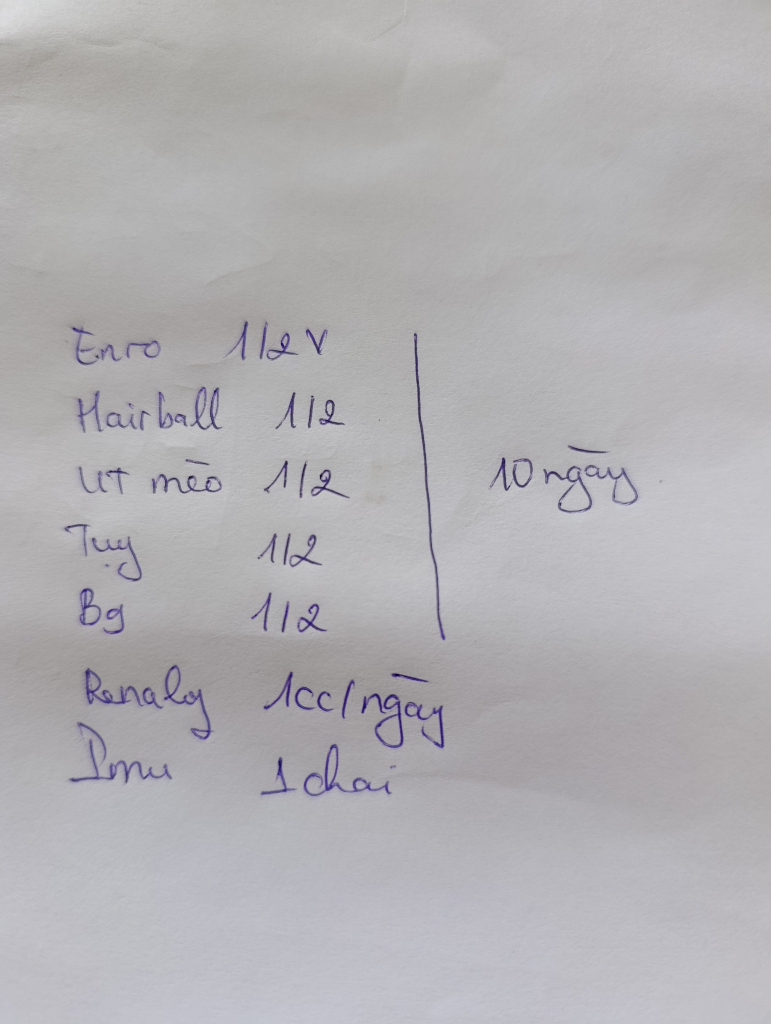 Enro 1/2 V
Hairball 1/2
UT mèo 1/2
Tụy 1/2
Bg 1/2
10 ngày
Renaloy 1cc/ngày
Imu 1 chai